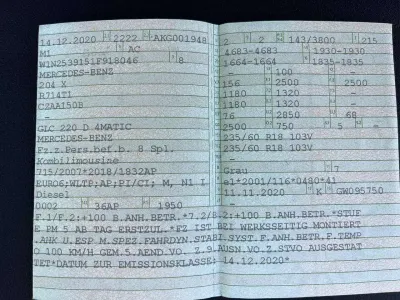 14.12.2020 2222 AKG001948
M1 AC
W1N2539151F918046 8
MERCEDES-BENZ
204 X
R714TI
CZAA150B
–
GLC 220 D 4MATIC
MERCEDES-BENZ
Fz.z.Pers.bef.b. 8 Spl.
Kombilimousine
715/2007*2018/1832AP
EURO6;WLTP;AP;PI/CI; M, N1 I
Diesel
0002 36AP 1950
2 2 143/3800 215
4683-4683 1930-1930
1664-1664 1835-1835
– 100 –
156 2500 2500
1180 1320 –
1180 1320 –
76 2850 68
2500 750 5 –
235/60 R18 103V
235/60 R18 103V
–
–
Grau 7
e1*2001/116*0480*41
11.11.2020 K GW095750
–
0.F.1/F.2:+100 B.ANH.BETR.*7.2/8.2:+100 B.ANH.BETR.*STUF
E PM 5 AB TAG ERSTZUL.*FZ IST BEI WERKSSEITIG MONTIERT
.ANK U.ESP M.SPEZ.FAHRDYN.STABI.SYST.F.ANH.BETR.F.TEMP
O 100 KM/H GEM.5.AEND.VO. Z.9.AUSN.VO.Z.STVO AUSGESTAT
TET*DATUM ZUR EMISSIONSKLASSE: 14.12.2020*